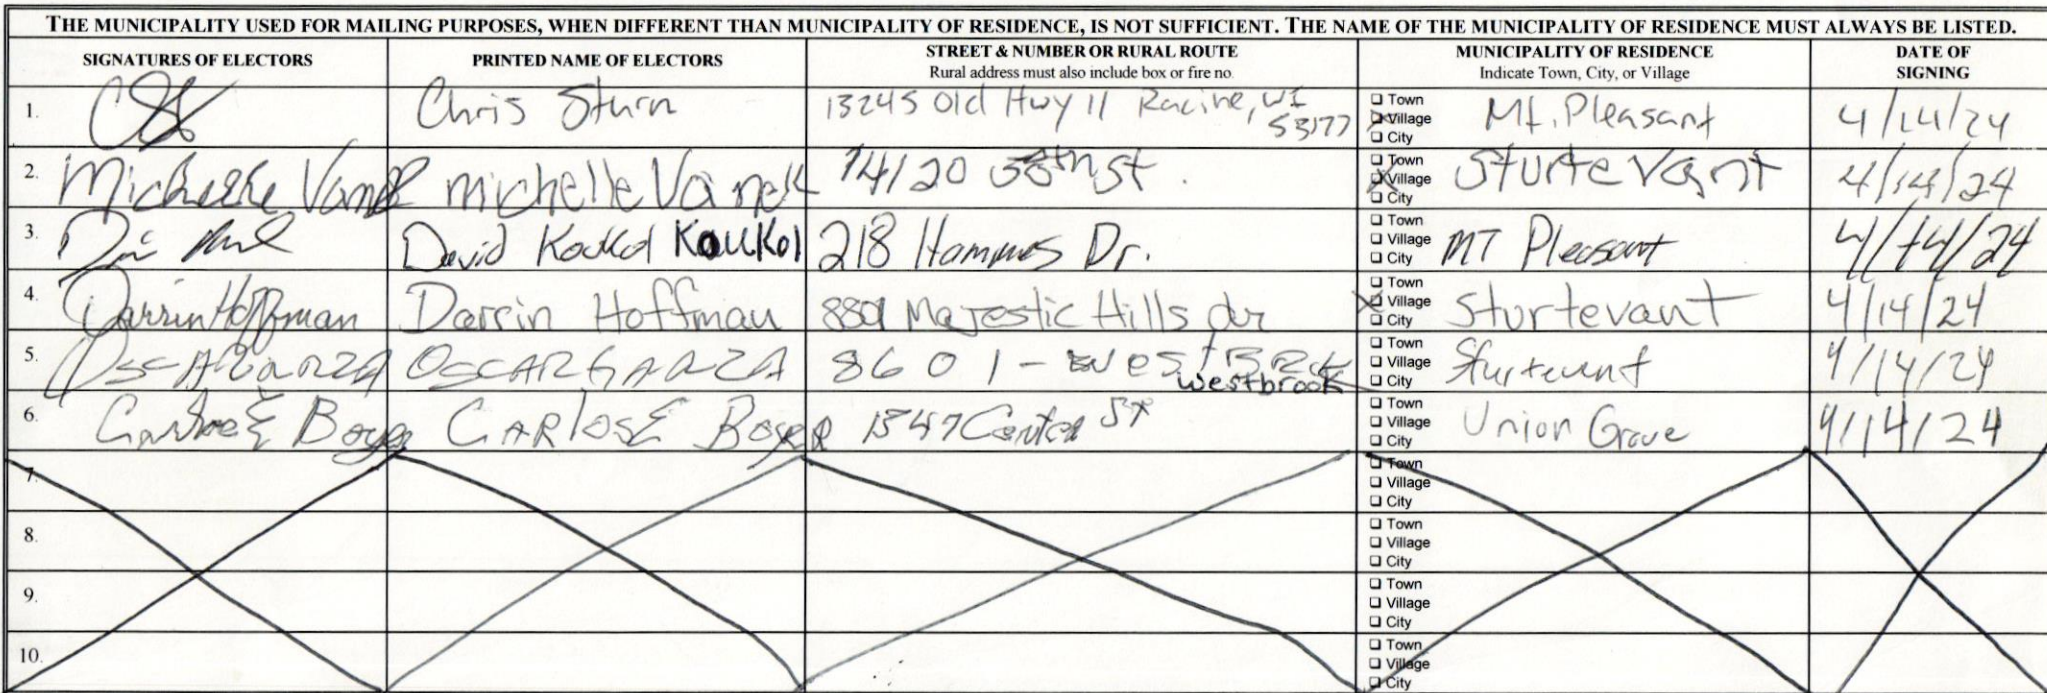 THE MUNICIPALITY USED FOR MAILING PURPOSES, WHEN DIFFERENT THAN MUNICIPALITY OF RESIDENCE, IS NOT SUFFICIENT. THE NAME OF THE MUNICIPALITY OF RESIDENCE MUST ALWAYS BE LISTED.
SIGNATURES OF ELECTORS PRINTED NAME OF ELECTORS STREET & NUMBER OR RURAL ROUTE MUNICIPALITY OF RESIDENCE DATE OF SIGNING
Rural address must also include box or fire no. Indicate Town, City, or Village
1. Chris Sturn 13245 Old Hwy 11 Racine, WI 53177 Town Village City Mt. Pleasant 4/14/24
2. Michelle michelle 14120 st. Town Village City Sturtevant 4/14/24
3. David Koukol Koukol 218 Hammes Dr. Town Village City MT Pleasant 4/14/24
4. Darrin Hoffman Darrin Hoffman 8801 Majestic Hills dr Town Village City Sturtevant 4/14/24
5. OSCAR GARZA OSCAR GARZA 8601 - westbrook Town Village City Sturtevant 4/14/24
6. CARlos E Boyer 1547 Center ST Town Village City Union Grove 4/14/24
7. Town Village City
8. Town Village City
9. Town Village City
10. Town Village City